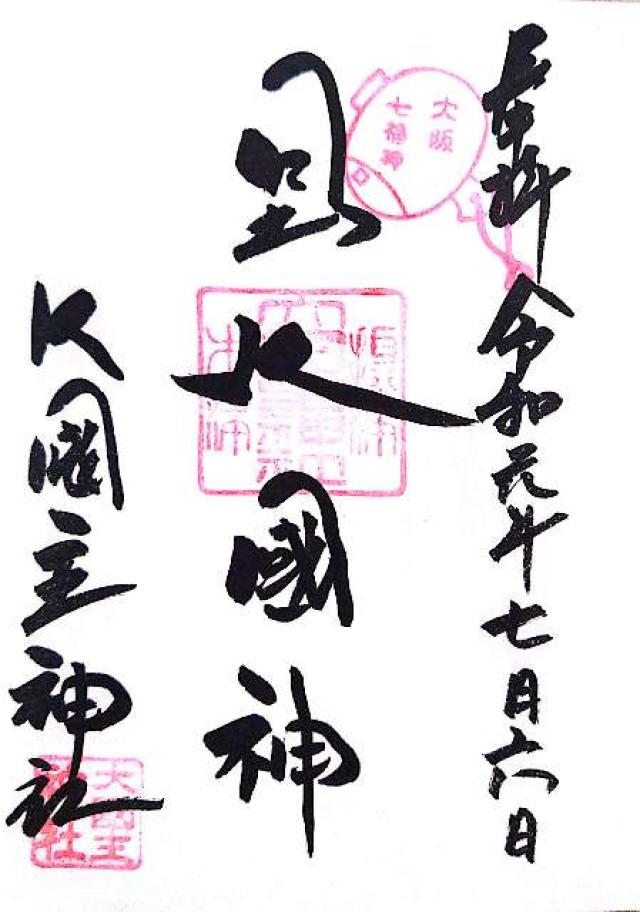 奉拝 令和元年七月六日
大阪
七福神
大國神
大國主神社
大国主
神社